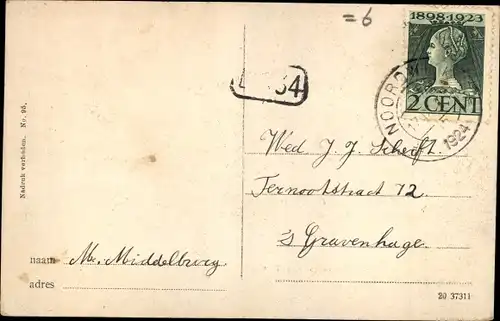 =6
1898-1923
2 CENT
1924
34
Nadruk verboden. No. 95.
Wed J. J. Scheft.
Ternootstraat 72
's Gravenhage.
naam Mr. Middelburg
adres
20 37311